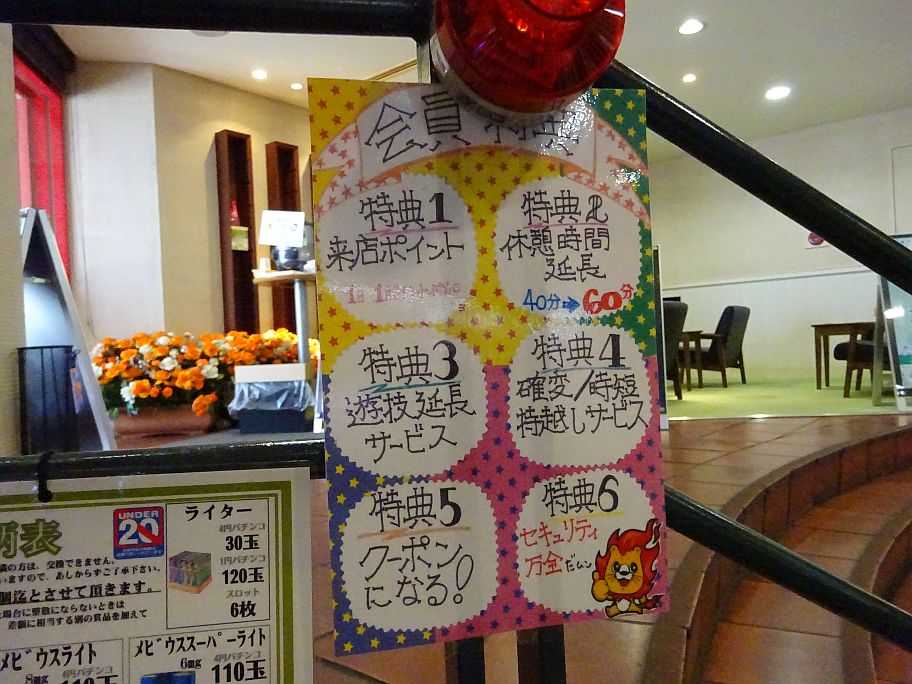 会員特典
特典1
来店ポイント
特典2
休憩時間
延長
40分→60分
特典3
遊技延長
サービス
特典4
確変/時短
持越しサービス
特典5
クーポン
になる!
特典6
セキュリティ
万全だムン
柄表
UNDER
20
満の方は、交換できません。
いますので、あしからずご了承下さい。
個迄とさせて頂きます。
ライター
4円パチンコ
30玉
1円パチンコ
120玉
スロット
6枚
メビウスライト
8mg
4円パチンコ
110玉
メビウススーパーライト
6mg
4円パチンコ
110玉